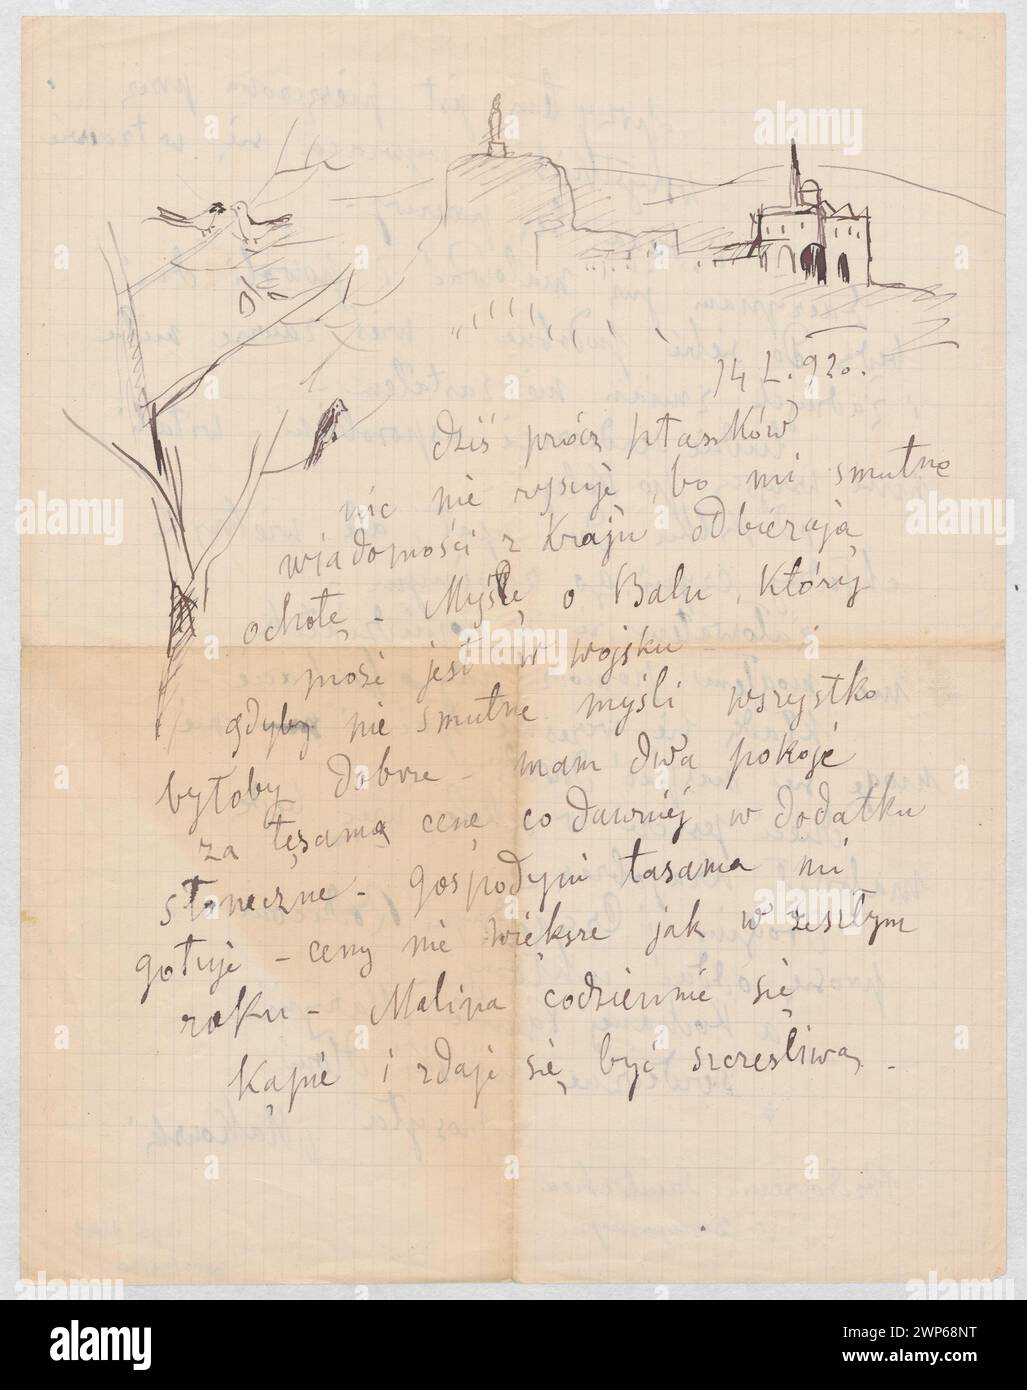 14 L. 920.
dziś prócz ptasków
nic nie rysuję, bo mi smutne
wiadomości z Kraju odbierają
ochotę - Myślę o Balu, który
może jest w wojsku -
gdyby nie smutne myśli wszystko
byłoby dobrze - mam dwa pokoje
za tęsamą cenę co dawniej w dodatku
słoneczne - gospodyni tasama mi
gotuje - ceny nie większe jak w zeszłym
roku - Malina codziennie się
kąpie i zdaje się być szczęśliwą -
alamy
alamy
Image ID: 2WP68NT
www.alamy.com